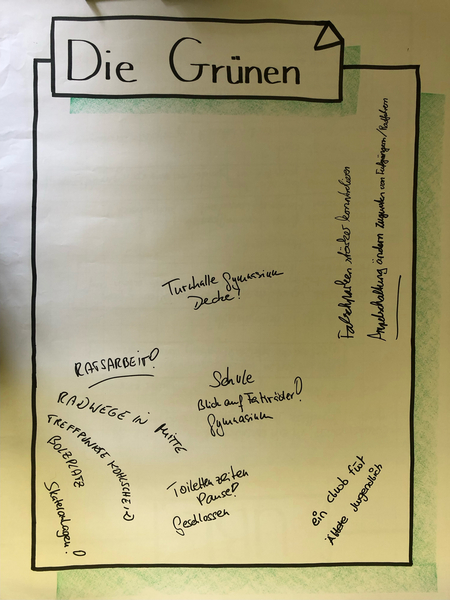 Die Grünen
Falschparken stärker kontrollieren
Ampelschaltung ändern zugunsten von Fußgängern/Radfahrern
Turnhalle Gymnasium
Decke!
RATSARBEIT!
RADWEGE IN MITTE
TREFFPUNKTE KOHLSCHEID
BOLZPLATZ
Skateranlagen!
Schule
Blick auf Fahrräder!
Gymnasium
Toiletten zeiten
Pause!
Geschlossen
ein Club für
ältere Jugendliche